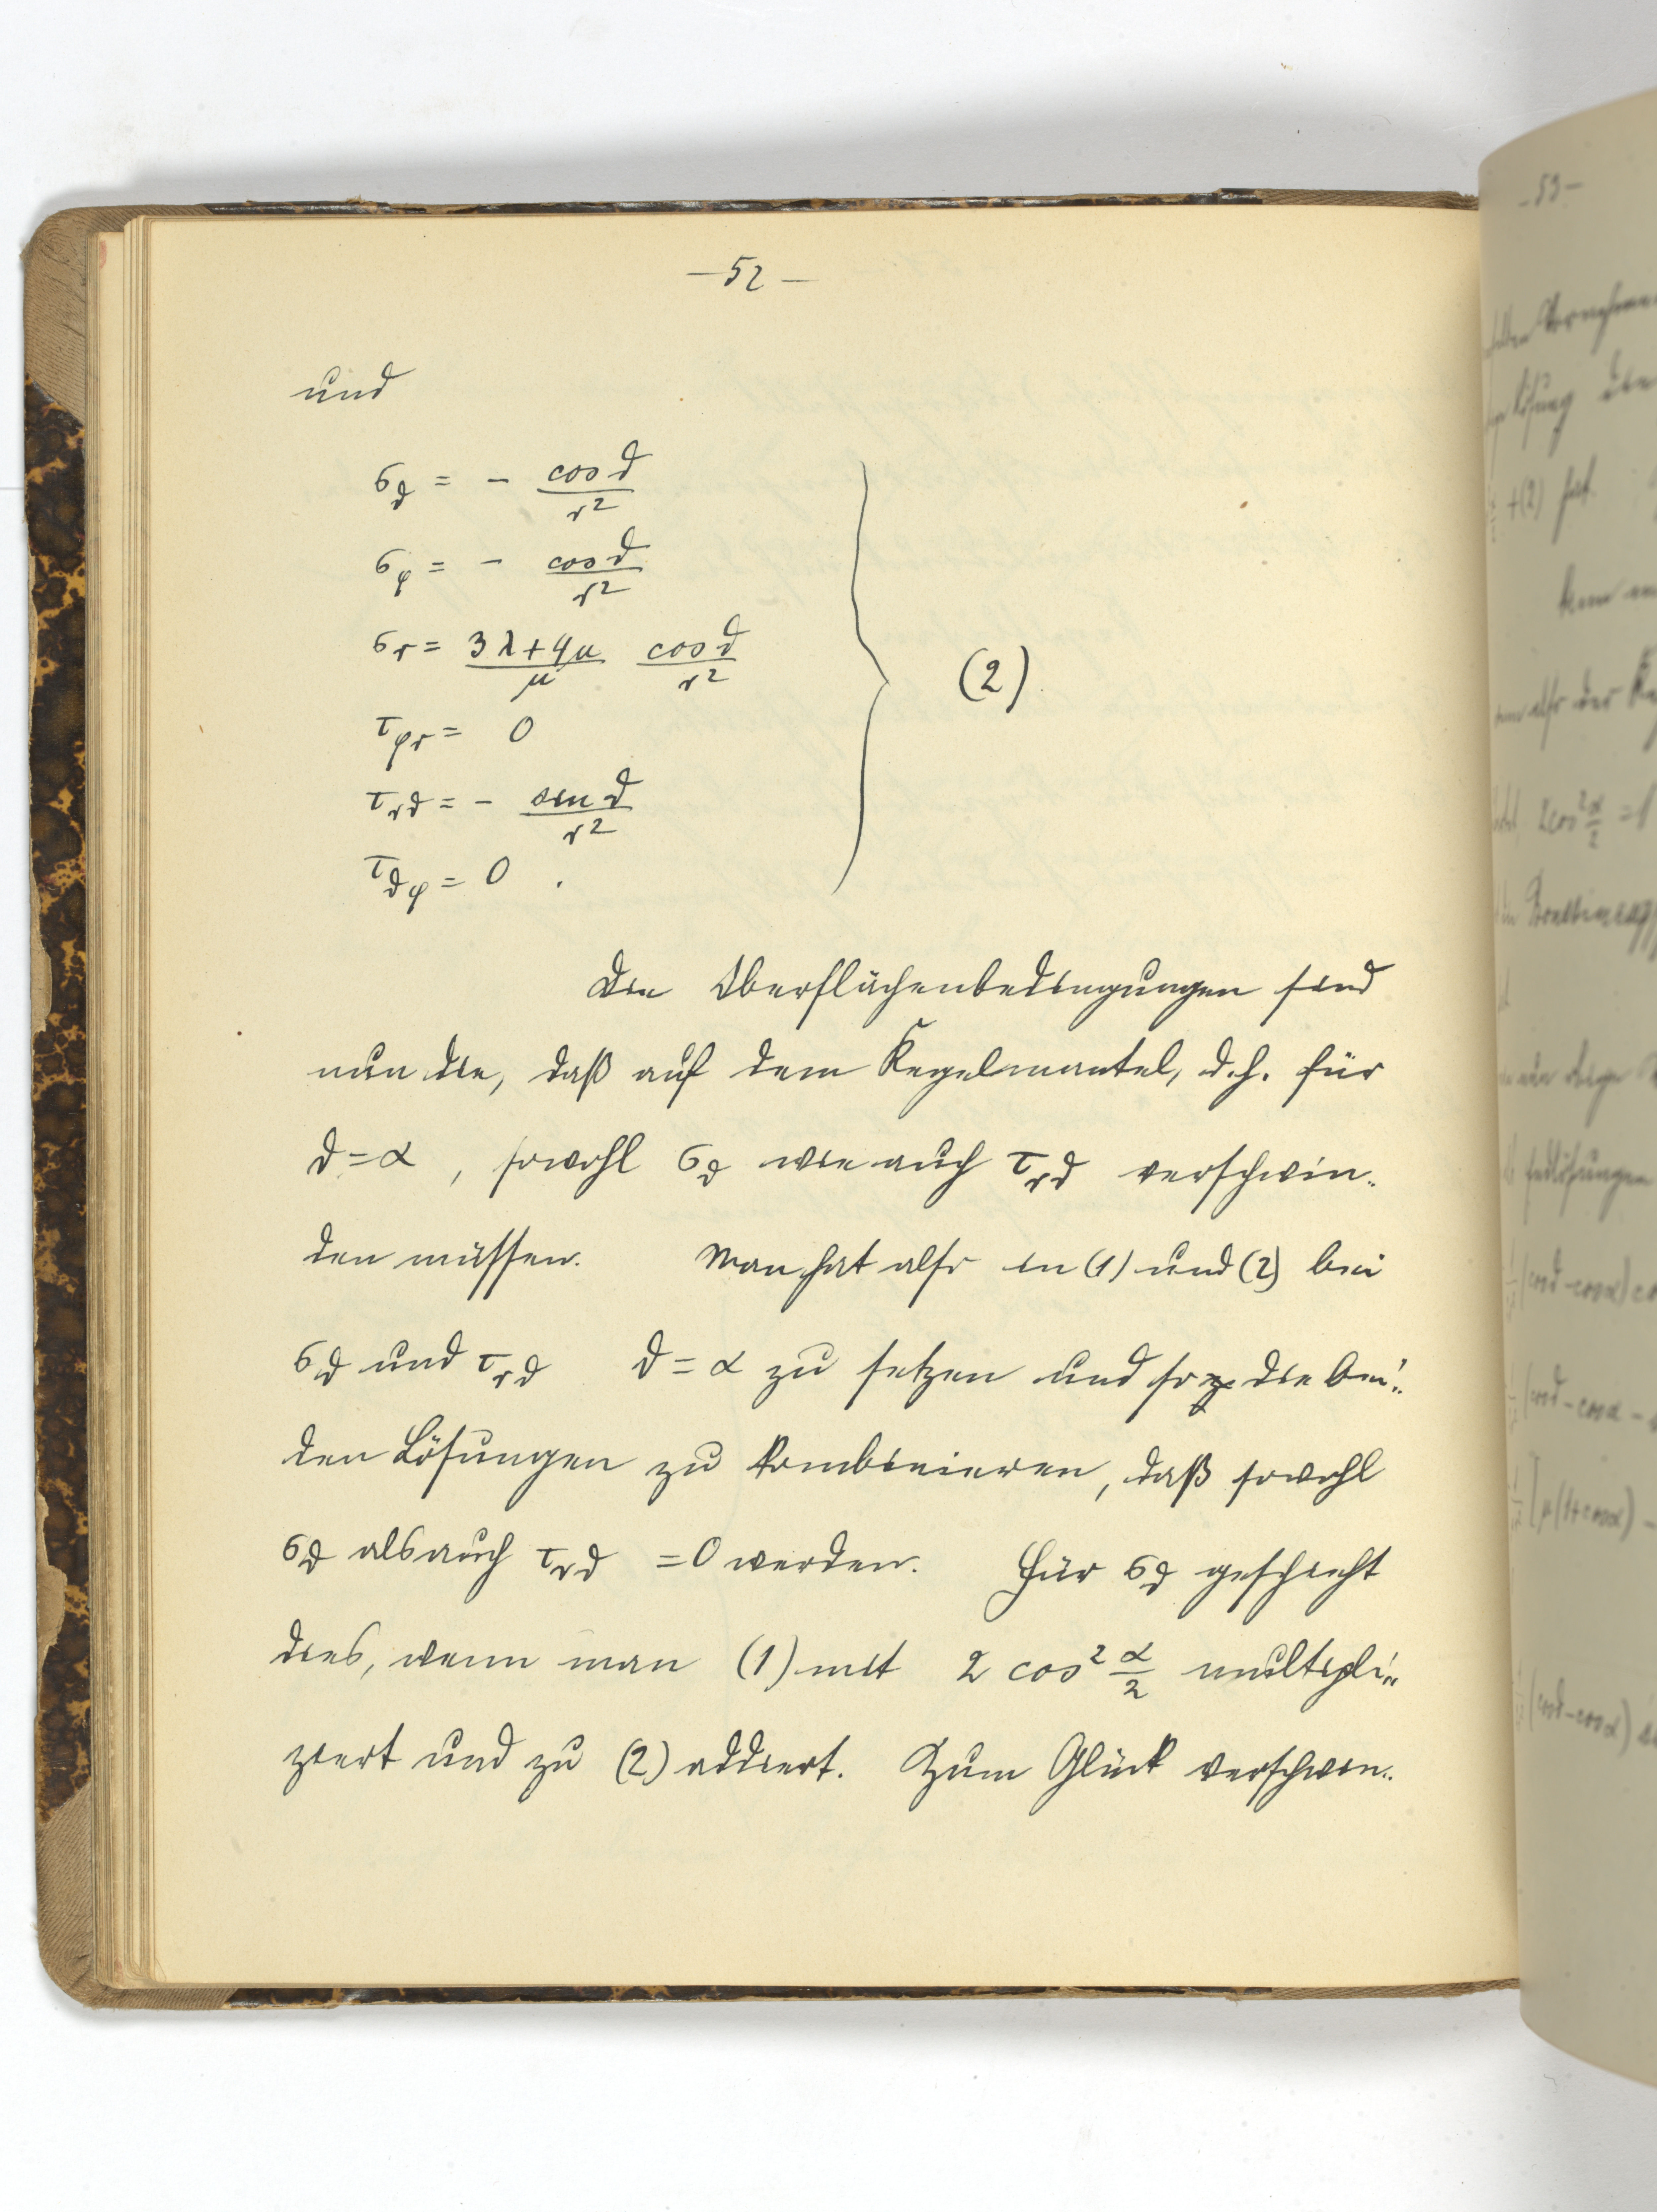 — 52 —
und
σ_ϑ = - cos ϑ / r²
σ_φ = - cos ϑ / r²
σ_r = (3λ+4μ) / μ cos ϑ / r²
τ_φr = 0
τ_rϑ = - sin ϑ / r²
τ_ϑφ = 0 .
(2)
Die Oberflächenbedingungen sind
nun die, daß auf dem Kegelmantel, d.h. für
ϑ = α , sowohl σ_ϑ wie auch τ_rϑ verschwin„
den müssen. Man hat also in (1) und (2) bei
σ_ϑ und τ_rϑ ϑ = α zu setzen und so die bei„
den Lösungen zu kombinieren, daß sowohl
σ_ϑ als auch τ_rϑ = 0 werden. Für σ_ϑ geschieht
dies, wenn man (1) mit 2 cos² α/2 multipli„
ziert und zu (2) addiert. Zum Glück verschwin„
— 53 —
+(2) hat.
2cos² α/2 = 1
(cosϑ - cosα)
(cosϑ - cosα -
[μ(1+cosα) -
(cosϑ - cosα)